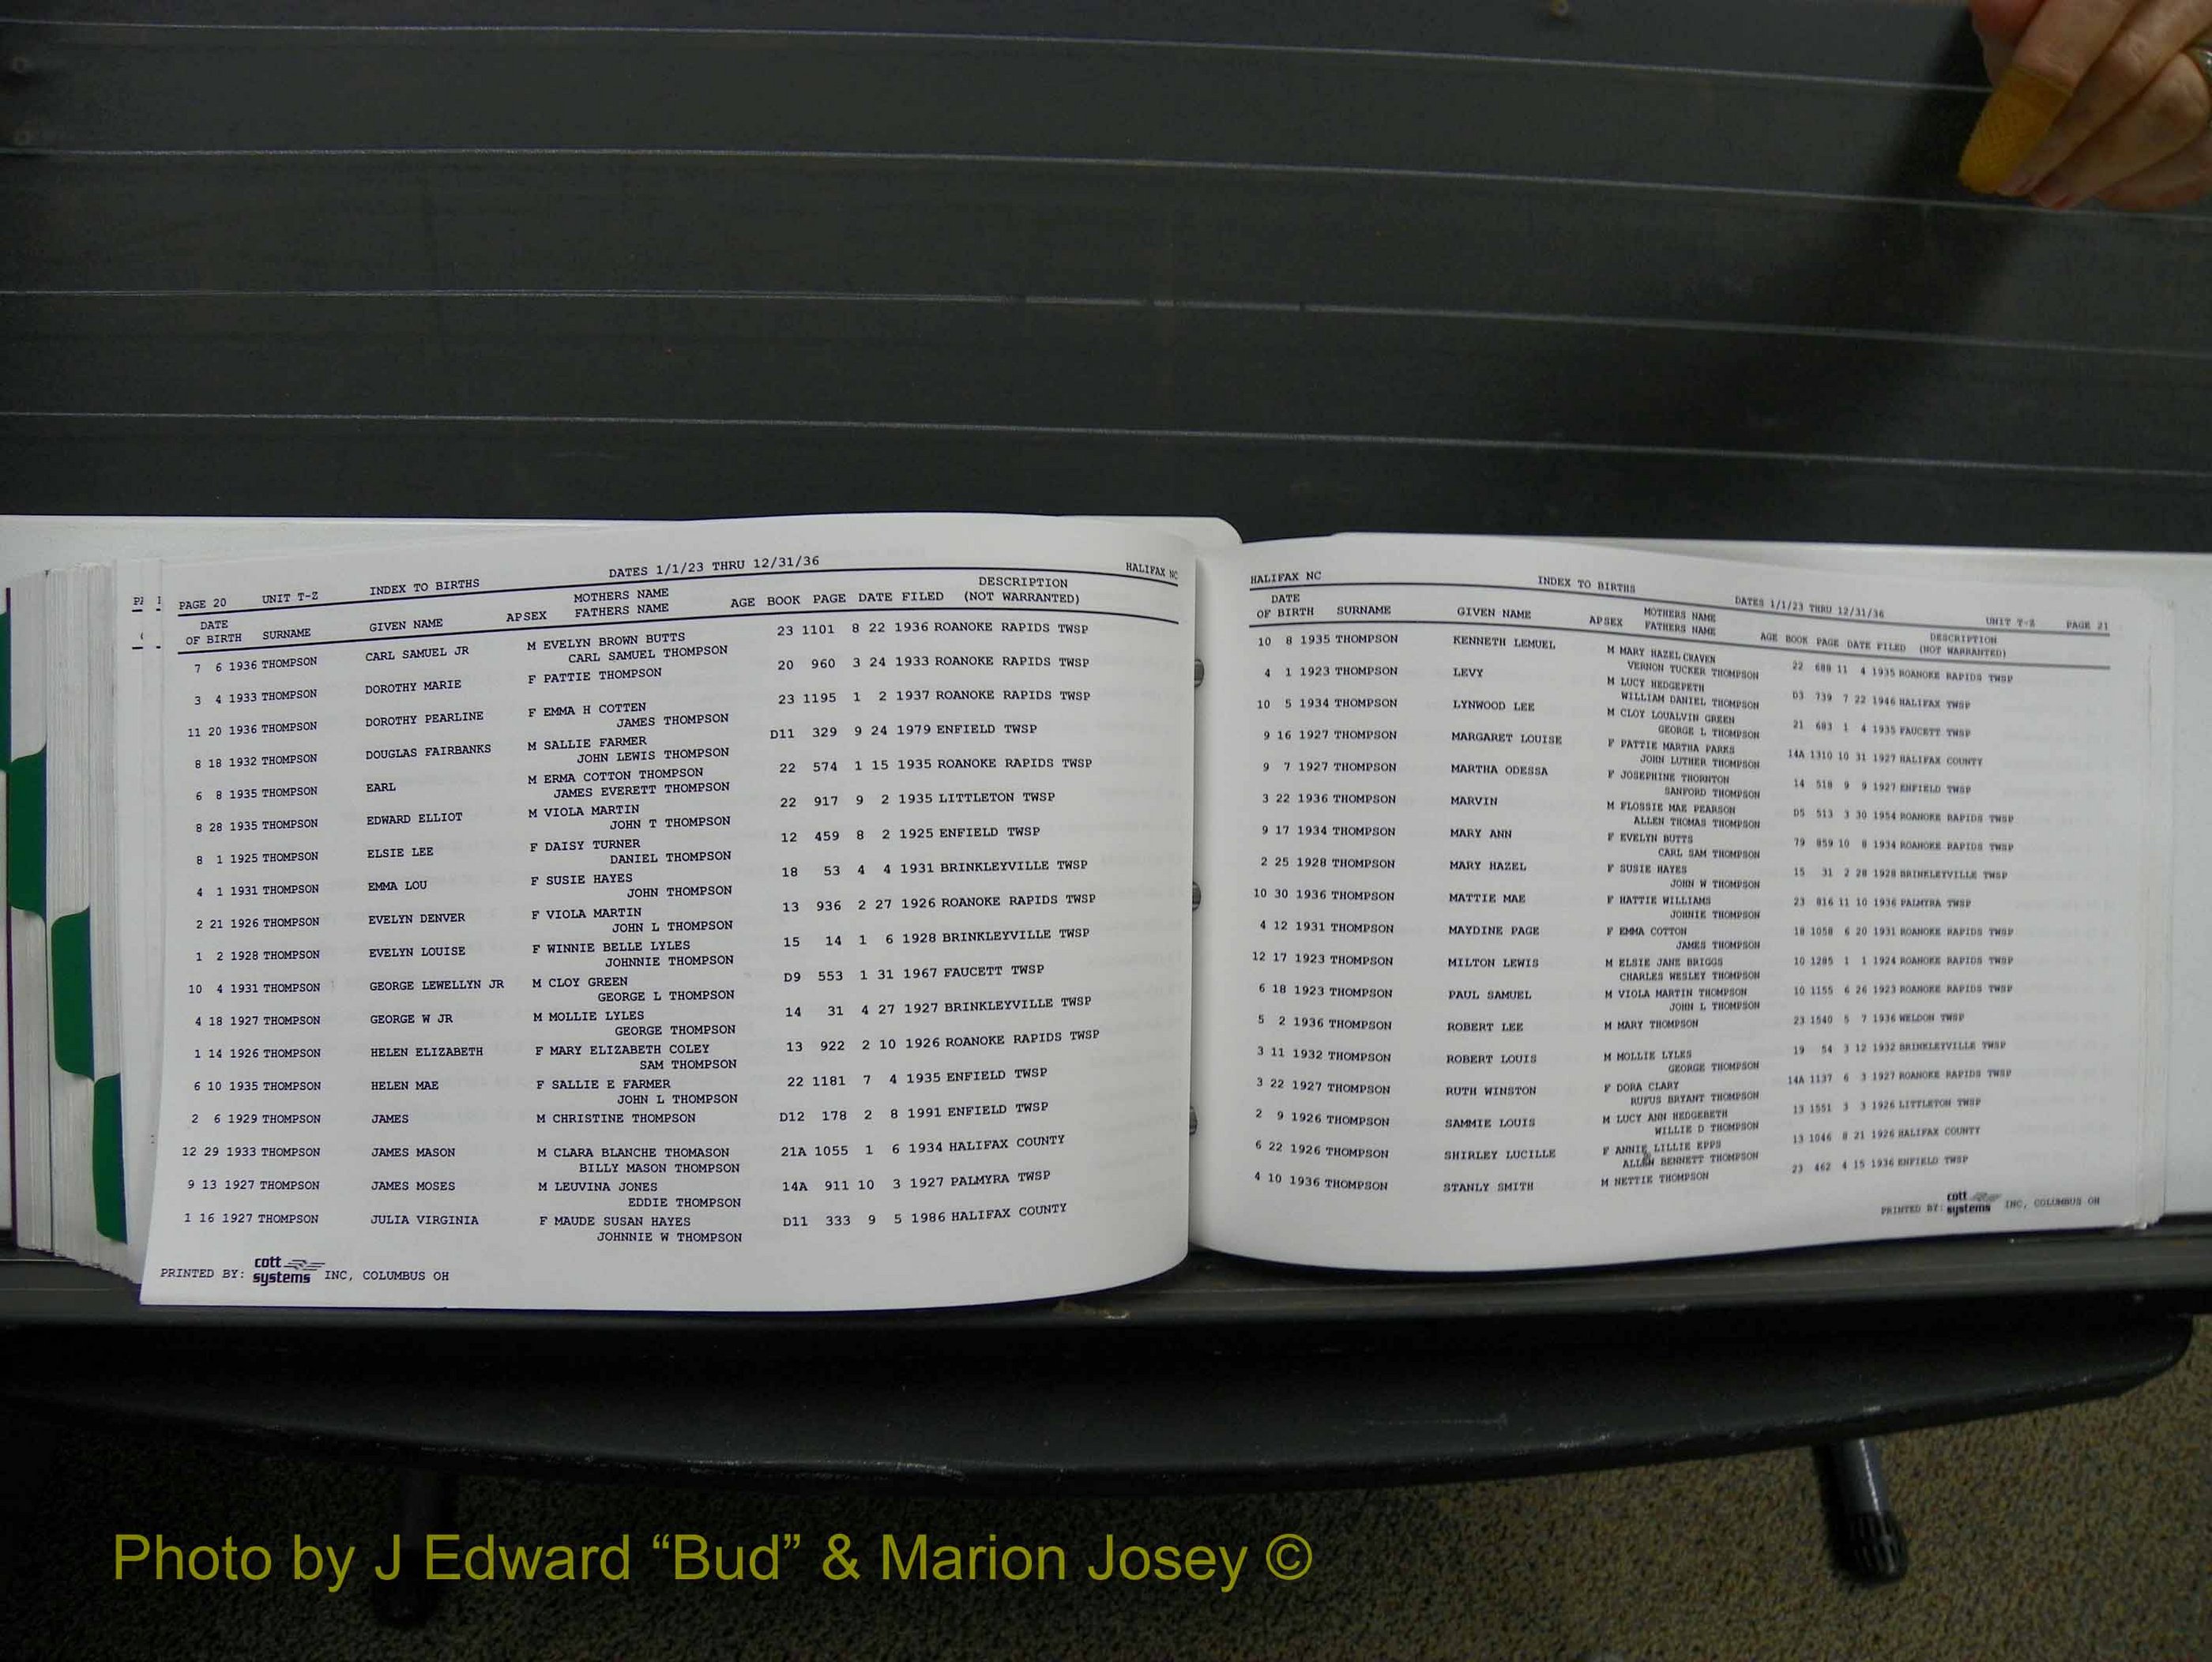 PAGE 20 UNIT T-Z INDEX TO BIRTHS DATES 1/1/23 THRU 12/31/36 HALIFAX NC
DATE MOTHERS NAME DESCRIPTION
OF BIRTH SURNAME GIVEN NAME APSEX FATHERS NAME AGE BOOK PAGE DATE FILED (NOT WARRANTED)
7 6 1936 THOMPSON CARL SAMUEL JR M EVELYN BROWN BUTTS 23 1101 8 22 1936 ROANOKE RAPIDS TWSP
CARL SAMUEL THOMPSON
3 4 1933 THOMPSON DOROTHY MARIE F PATTIE THOMPSON 20 960 3 24 1933 ROANOKE RAPIDS TWSP
11 20 1936 THOMPSON DOROTHY PEARLINE F EMMA H COTTEN 23 1195 1 2 1937 ROANOKE RAPIDS TWSP
JAMES THOMPSON
8 18 1932 THOMPSON DOUGLAS FAIRBANKS M SALLIE FARMER D11 329 9 24 1979 ENFIELD TWSP
JOHN LEWIS THOMPSON
6 8 1935 THOMPSON EARL M ERMA COTTON THOMPSON 22 574 1 15 1935 ROANOKE RAPIDS TWSP
JAMES EVERETT THOMPSON
8 28 1935 THOMPSON EDWARD ELLIOT M VIOLA MARTIN 22 917 9 2 1935 LITTLETON TWSP
JOHN T THOMPSON
8 1 1925 THOMPSON ELSIE LEE F DAISY TURNER 12 459 8 2 1925 ENFIELD TWSP
DANIEL THOMPSON
4 1 1931 THOMPSON EMMA LOU F SUSIE HAYES 18 53 4 4 1931 BRINKLEYVILLE TWSP
JOHN THOMPSON
2 21 1926 THOMPSON EVELYN DENVER F VIOLA MARTIN 13 936 2 27 1926 ROANOKE RAPIDS TWSP
JOHN L THOMPSON
1 2 1928 THOMPSON EVELYN LOUISE F WINNIE BELLE LYLES 15 14 1 6 1928 BRINKLEYVILLE TWSP
JOHNNIE THOMPSON
10 4 1931 THOMPSON GEORGE LEWELLYN JR M CLOY GREEN D9 553 1 31 1967 FAUCETT TWSP
GEORGE L THOMPSON
4 18 1927 THOMPSON GEORGE W JR M MOLLIE LYLES 14 31 4 27 1927 BRINKLEYVILLE TWSP
GEORGE THOMPSON
1 14 1926 THOMPSON HELEN ELIZABETH F MARY ELIZABETH COLEY 13 922 2 10 1926 ROANOKE RAPIDS TWSP
SAM THOMPSON
6 10 1935 THOMPSON HELEN MAE F SALLIE E FARMER 22 1181 7 4 1935 ENFIELD TWSP
JOHN L THOMPSON
2 6 1929 THOMPSON JAMES M CHRISTINE THOMPSON D12 178 2 8 1991 ENFIELD TWSP
12 29 1933 THOMPSON JAMES MASON M CLARA BLANCHE THOMASON 21A 1055 1 6 1934 HALIFAX COUNTY
BILLY MASON THOMPSON
9 13 1927 THOMPSON JAMES MOSES M LEUVINA JONES 14A 911 10 3 1927 PALMYRA TWSP
EDDIE THOMPSON
1 16 1927 THOMPSON JULIA VIRGINIA F MAUDE SUSAN HAYES D11 333 9 5 1986 HALIFAX COUNTY
JOHNNIE W THOMPSON
PRINTED BY: cott systems INC, COLUMBUS OH
HALIFAX NC INDEX TO BIRTHS DATES 1/1/23 THRU 12/31/36 UNIT T-Z PAGE 21
DATE MOTHERS NAME DESCRIPTION
OF BIRTH SURNAME GIVEN NAME APSEX FATHERS NAME AGE BOOK PAGE DATE FILED (NOT WARRANTED)
10 8 1935 THOMPSON KENNETH LEMUEL M MARY HAZEL CRAVEN 22 688 11 4 1935 ROANOKE RAPIDS TWSP
VERNON TUCKER THOMPSON
4 1 1923 THOMPSON LEVY M LUCY HEDGEPETH D3 739 7 22 1946 HALIFAX TWSP
WILLIAM DANIEL THOMPSON
10 5 1934 THOMPSON LYNWOOD LEE M CLOY LOUALVIN GREEN 21 683 1 4 1935 FAUCETT TWSP
GEORGE L THOMPSON
9 16 1927 THOMPSON MARGARET LOUISE F PATTIE MARTHA PARKS 14A 1310 10 31 1927 HALIFAX COUNTY
JOHN LUTHER THOMPSON
9 7 1927 THOMPSON MARTHA ODESSA F JOSEPHINE THORNTON 14 518 9 9 1927 ENFIELD TWSP
SANFORD THOMPSON
3 22 1936 THOMPSON MARVIN M FLOSSIE MAE PEARSON D5 513 3 30 1954 ROANOKE RAPIDS TWSP
ALLEN THOMAS THOMPSON
9 17 1934 THOMPSON MARY ANN F EVELYN BUTTS 79 859 10 8 1934 ROANOKE RAPIDS TWSP
CARL SAM THOMPSON
2 25 1928 THOMPSON MARY HAZEL F SUSIE HAYES 15 31 2 28 1928 BRINKLEYVILLE TWSP
JOHN W THOMPSON
10 30 1936 THOMPSON MATTIE MAE F HATTIE WILLIAMS 23 816 11 10 1936 PALMYRA TWSP
JOHNIE THOMPSON
4 12 1931 THOMPSON MAYDINE PAGE F EMMA COTTON 18 1058 6 20 1931 ROANOKE RAPIDS TWSP
JAMES THOMPSON
12 17 1923 THOMPSON MILTON LEWIS M ELSIE JANE BRIGGS 10 1285 1 1 1924 ROANOKE RAPIDS TWSP
CHARLES WESLEY THOMPSON
6 18 1923 THOMPSON PAUL SAMUEL M VIOLA MARTIN THOMPSON 10 1155 6 26 1923 ROANOKE RAPIDS TWSP
JOHN L THOMPSON
5 2 1936 THOMPSON ROBERT LEE M MARY THOMPSON 23 1540 5 7 1936 WELDON TWSP
3 11 1932 THOMPSON ROBERT LOUIS M MOLLIE LYLES 19 54 3 12 1932 BRINKLEYVILLE TWSP
GEORGE THOMPSON
3 22 1927 THOMPSON RUTH WINSTON F DORA CLARY 14A 1137 6 3 1927 ROANOKE RAPIDS TWSP
RUFUS BRYANT THOMPSON
2 9 1926 THOMPSON SAMMIE LOUIS M LUCY ANN HEDGEBETH 13 1551 3 3 1926 LITTLETON TWSP
WILLIE D THOMPSON
6 22 1926 THOMPSON SHIRLEY LUCILLE F ANNIE LILLIE EPPS 13 1046 8 21 1926 HALIFAX COUNTY
ALLEN BENNETT THOMPSON
4 10 1936 THOMPSON STANLY SMITH M NETTIE THOMPSON 23 462 4 15 1936 ENFIELD TWSP
PRINTED BY: cott systems INC, COLUMBUS OH
Photo by J Edward “Bud” & Marion Josey ©